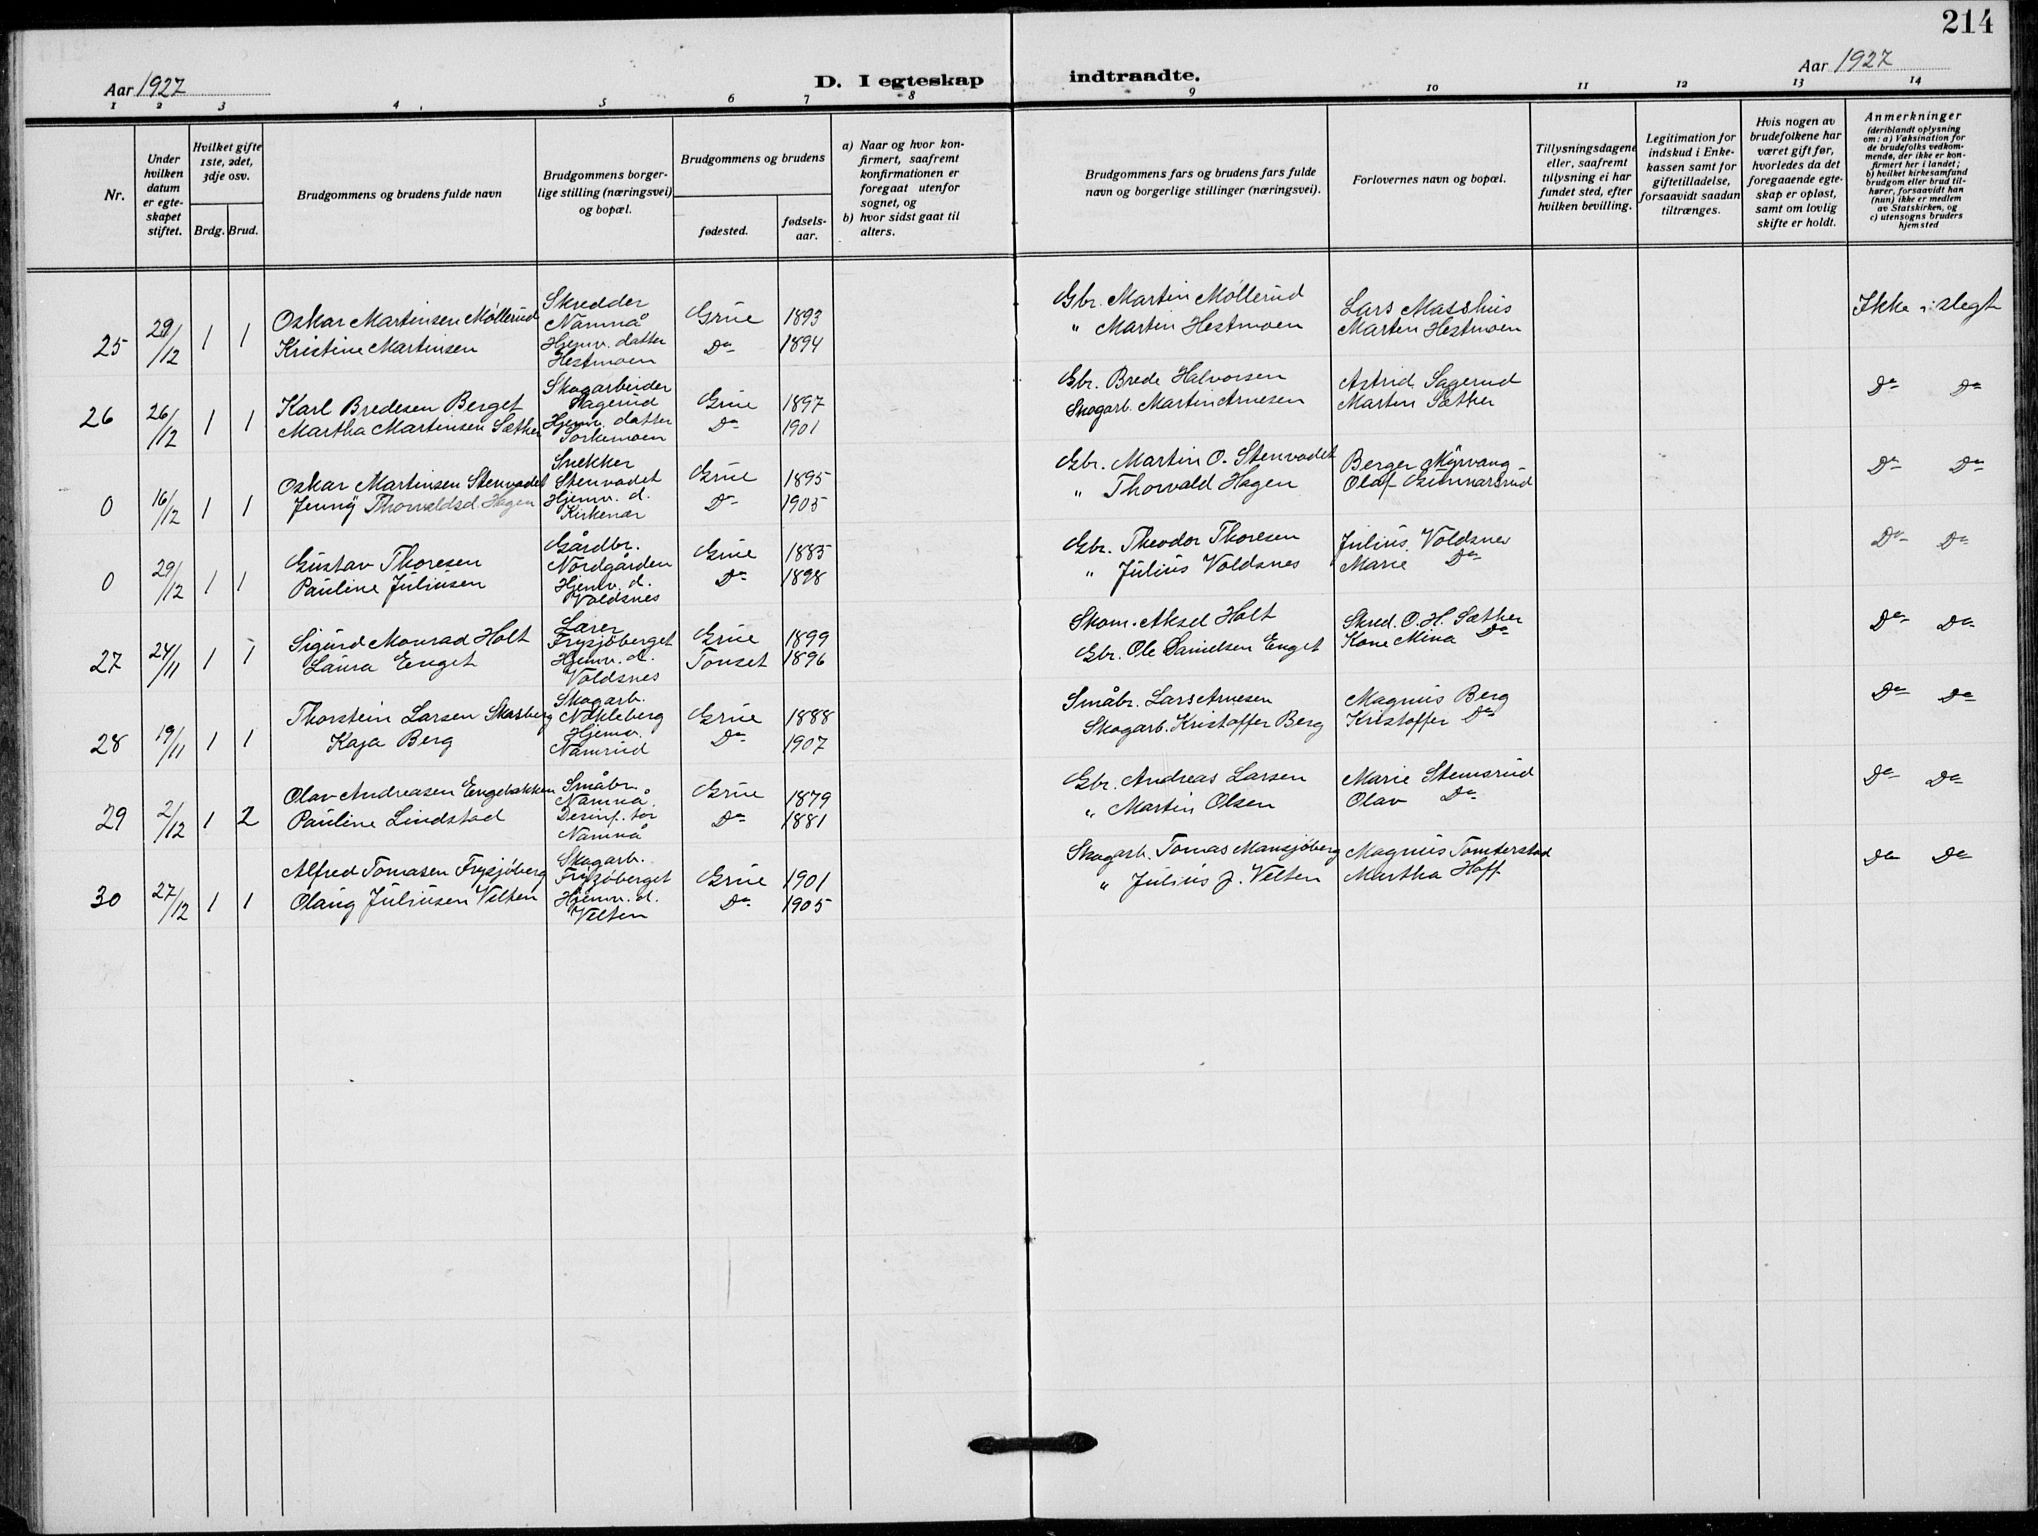 214
Aar 1927
D. I egteskap indtraadte.
Aar 1927
1 2 3 4 5 6 7 8 9 10 11 12 13 14
Nr.
Under hvilken datum er egteskapet stiftet.
Hvilket gifte 1ste, 2det, 3dje osv.
Brdg. Brud.
Brudgommens og brudens fulde navn
Brudgommens borgerlige stilling (næringsvei) og bopæl.
Brudgommens og brudens
fødested. fødselsaar.
a) Naar og hvor konfirmert, saafremt konfirmationen er foregaat utenfor sognet, og
b) hvor sidst gaat til alters.
Brudgommens fars og brudens fars fulde navn og borgerlige stillinger (næringsvei).
Forlovernes navn og bopæl.
Tillysningsdagene eller, saafremt tillysning ei har fundet sted, efter hvilken bevilling.
Legitimation for indskud i Enkekassen samt for giftetilladelse, forsaavidt saadan tiltrænges.
Hvis nogen av brudefolkene har været gift før, hvorledes da det foregaaende egteskap er opløst, samt om lovlig skifte er holdt.
Anmerkninger
(deriblandt oplysning om: a) Vaksination for de brudefolks vedkommende, der ikke er konfirmert her i landet; b) hvilket kirkesamfund brudgom eller brud tilhører, forsaavidt han (hun) ikke er medlem av Statskirken, og c) utensogns bruders hjemsted
25 29/12 1 1
Oskar Martinsen Møllerud
Kristine Martinsen
Skredder
Namnå
Hjemv. datter
Hestmoen
Grue 1893
Do 1894
Gbr. Martin Møllerud
" Martin Hestmoen
Lars Masshus
Martin Hestmoen
Ikke i slegt
26 26/12 1 1
Karl Bredesen Berget
Martha Martinsen Sæther
Skogarbeider
Hagerud
Hjemv. datter
Torkemoen
Grue 1897
Do 1901
Gbr. Brede Halvorsen
Skogarb. Martin Arnesen
Astrid Sagerud
Martin Sæther
Do Do
0 16/12 1 1
Oskar Martinsen Stenvadet
Jenny Thorvaldsd. Hagen
Snekker
Stenvadet
Hjemv. d.
Kirkenær
Grue 1895
Do 1905
Gbr. Martin O. Stenvadet
" Thorvald Hagen
Berger Myrvang
Olaf Gunnarsrud
Do Do
0 29/12 1 1
Gustav Thoresen
Pauline Juliusen
Gårdbr.
Nordgården
Hjemv. d.
Voldsnes
Grue 1885
Do 1898
Gbr. Theodor Thoresen
" Julius Voldsnes
Julius Voldsnes
Marie Do
Do Do
27 24/11 1 1
Sigurd Monrad Holt
Laura Enget
Lærer
Frysjøberget
Hjemv. d.
Voldsnes
Grue 1899
Tønset 1896
Skom. Aksel Holt
Gbr. Ole Danielsen Enget
Skred. O. H. Sæther
Kone Mina Do
Do Do
28 19/11 1 1
Thorstein Larsen Skasberg
Kaja Berg
Skogarb.
Nökleberg
Hjemv.
Namrud
Grue 1888
Do 1907
Småbr. Lars Arnesen
Skogarb. Kristoffer Berg
Magnus Berg
Kristoffer Do
Do Do
29 2/12 1 2
Olav Andreasen Engebakken
Pauline Lindstad
Småbr.
Namnå
Desinf. tør
Namnå
Grue 1879
Do 1881
Gbr. Andreas Larsen
" Martin Olsen
Marie Stemsrud
Olav Do
Do Do
30 27/12 1 1
Alfred Tomasen Frysjøberg
Olaug Juliusen Velten
Skogarb.
Frysjøberget
Hjemv. d.
Velten
Grue 1901
Do 1905
Skogarb. Tomas Mansjøberg
" Julius J. Velten
Magnus Tomterstad
Martha Hoff
Do Do